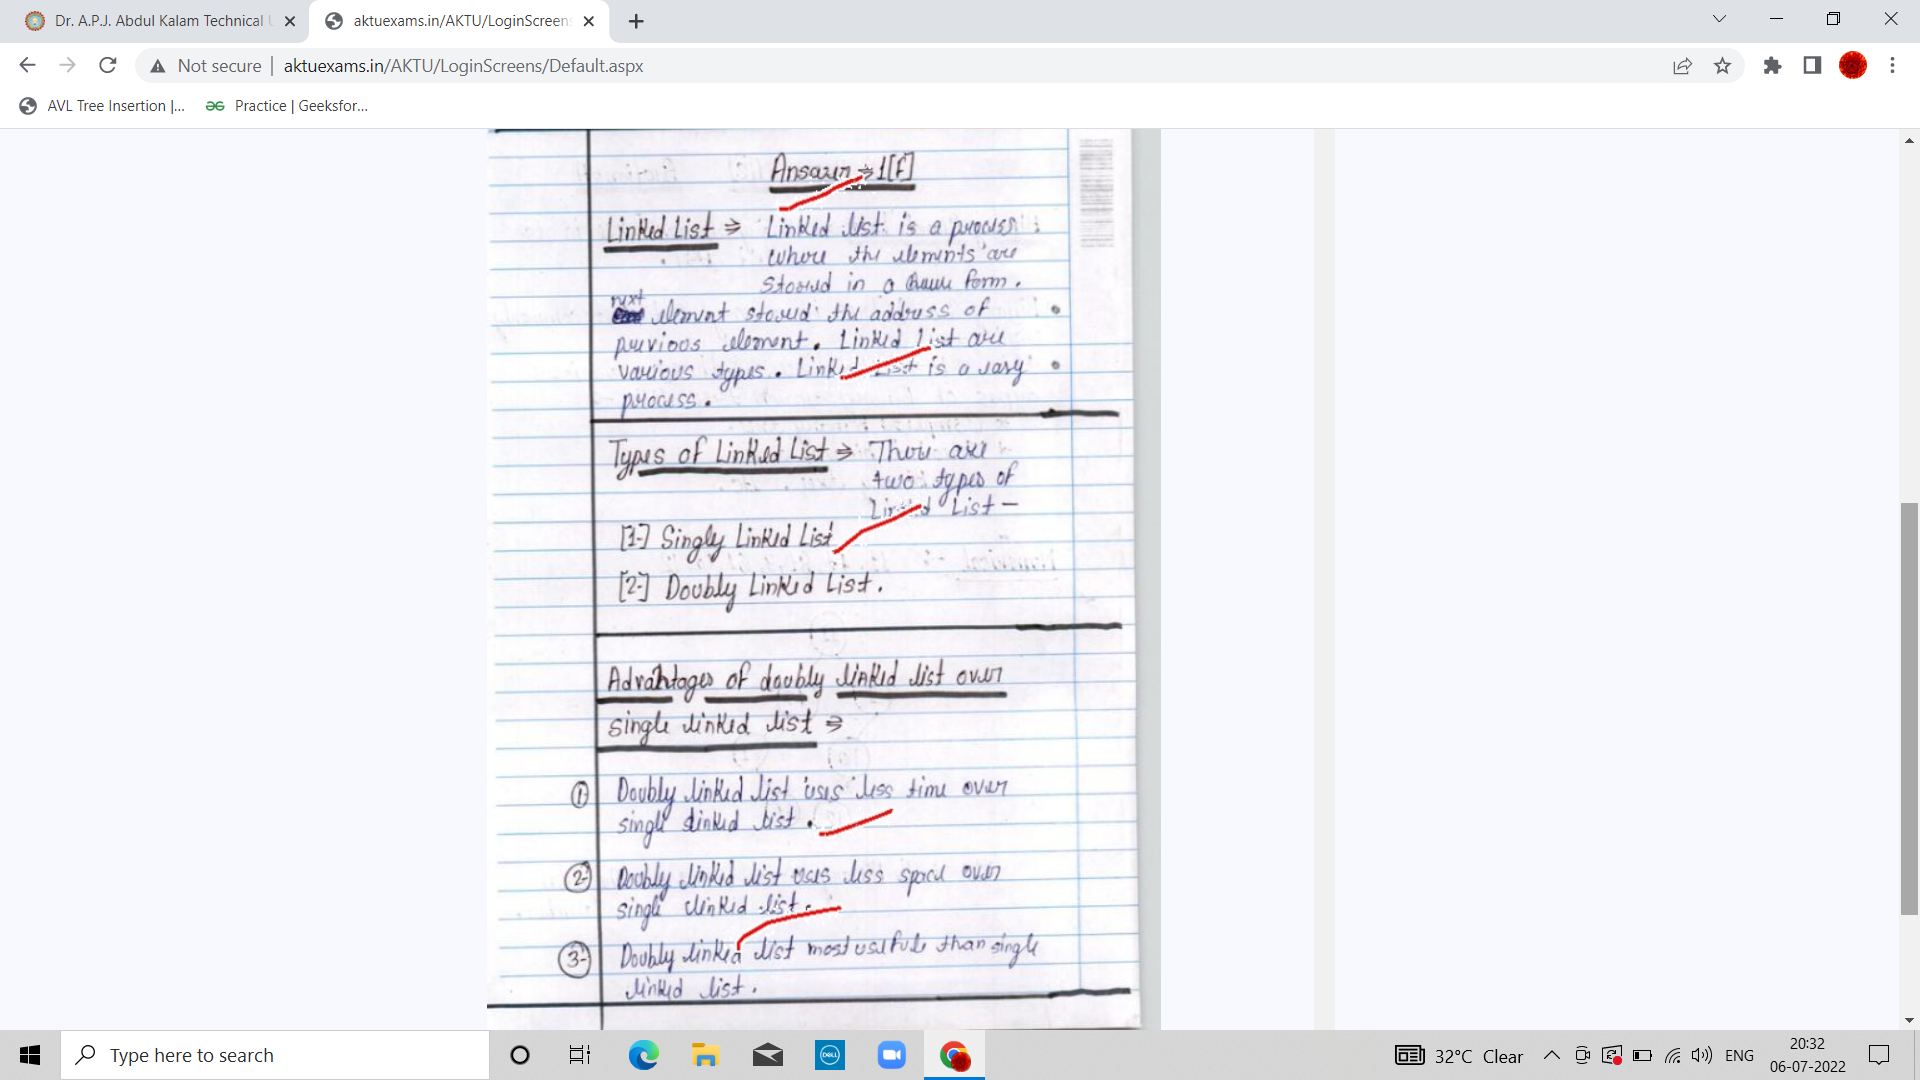 Dr. A.P.J. Abdul Kalam Technical
aktuexams.in/AKTU/LoginScreen
Not secure
aktuexams.in/AKTU/LoginScreens/Default.aspx
AVL Tree Insertion |...
Practice | Geeksfor...
Answer ⇒ 1[f]
Linked List ⇒ Linked list is a process
where the elements are
stored in a form.
next
element stored the address of
previous element. Linked list are
various types. Linked List is a
process.
Types of Linked List ⇒ There are
two types of
Linked List –
[1-] Singly Linked List
[2-] Doubly Linked List.
Advantages of doubly linked list over
single linked list ⇒
① Doubly linked list uses less time over
single linked list.
② Doubly linked list uses less space over
single linked list.
③ Doubly linked list most usefule than single
linked list.
Type here to search
DELL
32°C Clear
ENG
20:32
06-07-2022